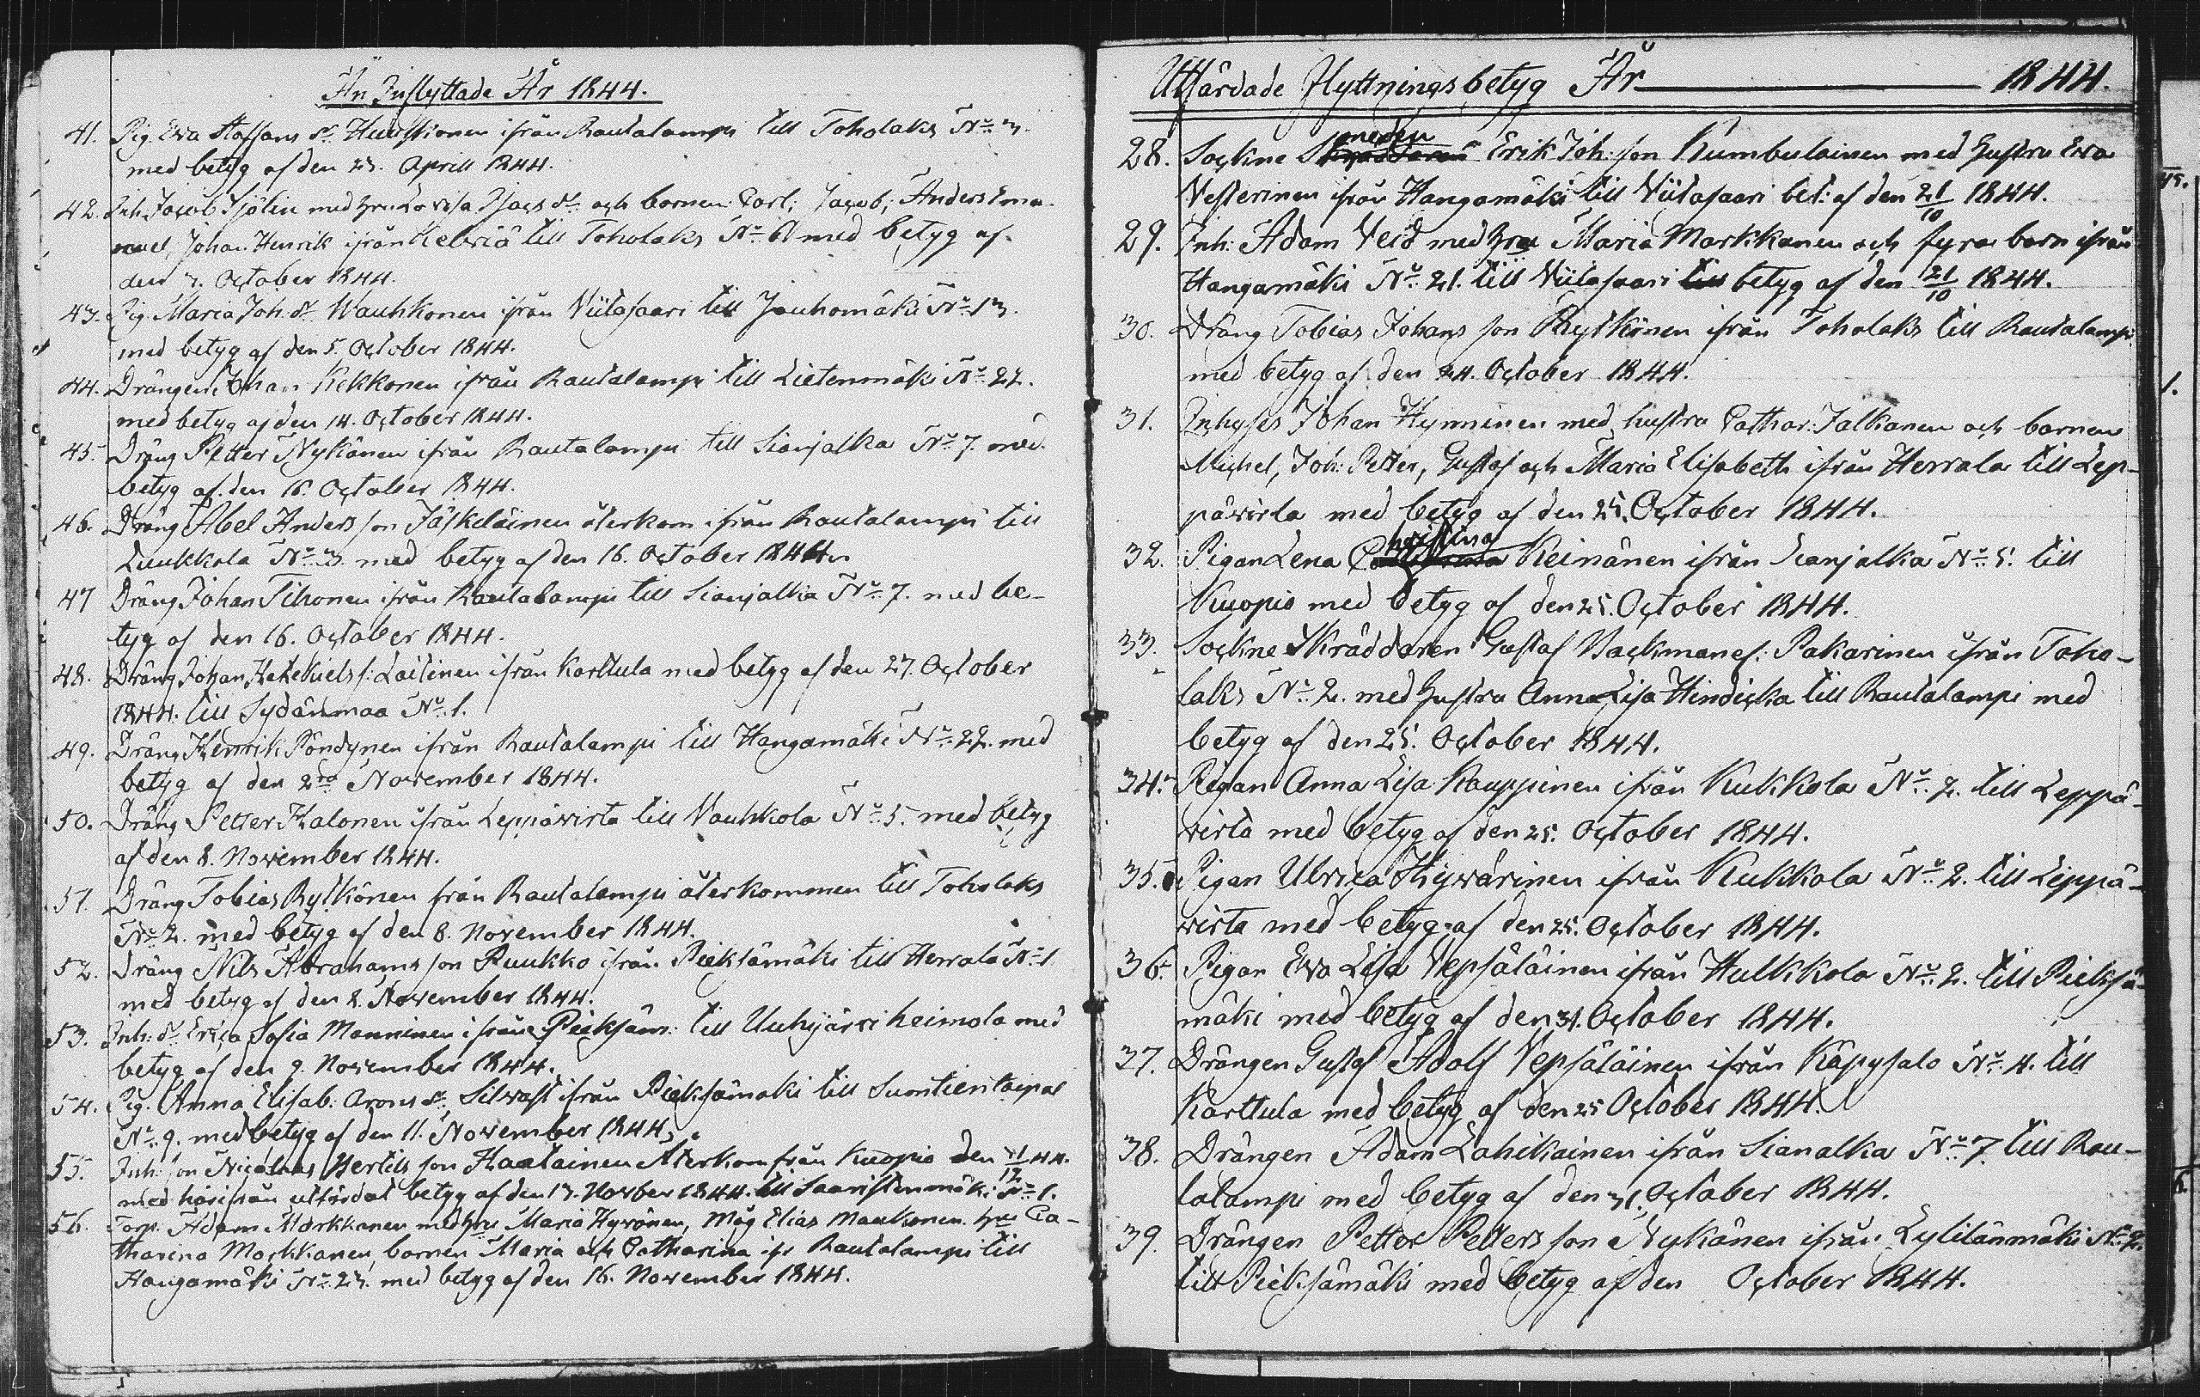 Än Inflyttade År 1844.
41. Pig. Eva Staffans dr. Huuskonen ifrån Rautalampi till Toholaks No. 3.
med betyg af den 23. Aprill 1844.
42. Inh. Jacob Sjölin med hru Lovisa dr. och barnen Carl, Jacob, Anders Ema-
nuel, Johan Henrik ifrån till Toholaks No. 6 med betyg af
den 7. October 1844.
43. Pig. Maria Joh. dr. Wauhkonen ifrån Viitasaari till Jauhomäki No. 13.
med betyg af den 5. October 1844.
44. Drängen Johan Kekkonen ifrån Rautalampi till Lietenmäki No. 22.
med betyg af den 14. October 1844.
45. Dräng Petter Nykänen ifrån Rautalampi till Sianjalka No. 7. med
betyg af den 16. October 1844.
46. Dräng Abel Anders son Jäskeläinen återkom ifrån Rautalampi till
Luukkola No. 3. med betyg af den 16. October 1844.
47 Dräng Johan Tihonen ifrån Rautalampi till Sianjalka No. 7. med be-
tyg af den 16. October 1844.
48. Dräng Johan Hesekiels s: Laitinen ifrån Karttula med betyg af den 27. October
1844. till Sydänmaa No. 1.
49. Dräng Henrik Pöndynen ifrån Rautalampi till Hangamäki No. 22. med
betyg af den 2dra November 1844.
50. Dräng Petter Halonen ifrån Leppävirta till Vauhkola No. 5. med betyg
af den 8. November 1844.
51. Dräng Tobias Rytkönen från Rautalampi återkommen till Toholaks
No. 2. med betyg af den 8. November 1844.
52. Dräng Nils Abrahams son Puukko ifrån Pieksämäki till Herrala No. 1
med betyg af den 8. November 1844.
53. Inh: dr. Erica Sofia Manninen ifrån Pieksäm: till heimola med
betyg af den 9. November 1844.
54. Pig. Anna Elisab: Arons dr. Silvast ifrån Pieksämäki till Suontientaipal
No. 9. med betyg af den 11. November 1844.
55. Inh: son Nicolaus Bertils son Haatainen Återkom från Kuopio den 44.
med härifrån utfärdat betyg af den 13. Novber 1844. till Saaristenmäki No. 1.
56. Torp. Adam Markkanen med hru Maria Hyvönen, Måg Elias Maukonen hru Ca-
tharina Markkanen, barnen Maria och Catharina ifr Rautalampi till
Hangamäki No. 23. med betyg af den 16. November 1844.
Utfärdade Flyttningsbetyg År 1844.
28. Sockne smeden Erik Joh: son Kumbulainen med hustru Eva
Vesterinen ifrån Hangamäki till Viitasaari bet: af den 21/10 1844.
29. Inh: Adam Veid med hru Maria Markkanen och fyra barn ifrån
Hangamäki No. 21. till Viitasaari till betyg af den 21/10 1844.
30. Dräng Tobias Johans son Rytkönen ifrån Toholaks till Rautalampi
med betyg af den 24. October 1844.
31. Inhyses Johan Hynninen med hustru Cathar: Jalkanen och barnen
Michel, Joh: Petter, Gustaf och Maria Elisabeth ifrån Herrala till Lep-
pävirta med betyg af den 25. October 1844.
32. Pigan Lena Christina Keinänen ifrån Sianjalka No. 5. till
Kuopio med betyg af den 25. October 1844.
33. Sockne Skräddaren Gustaf Backman el: Pakarinen ifrån Toho-
laks No. 2. med hustru Anna Lisa Hindicka till Rautalampi med
betyg af den 25. October 1844.
34. Pigan Anna Lisa Kauppinen ifrån Kukkola No. 2. till Leppä-
virta med betyg af den 25. October 1844.
35. Pigan Ulrica Hyvärinen ifrån Kukkola No. 2. till Leppä-
virta med betyg af den 25. October 1844.
36. Pigan Eva Lisa Vepsäläinen ifrån Hulkkola No. 2. till Pieksä-
mäki med betyg af den 31. October 1844.
37. Drängen Gustaf Adolf Vepsäläinen ifrån Käpysalo No. 4. till
Karttula med betyg af den 25 October 1844.
38. Drängen Adam Lahikainen ifrån Sianalka No. 7. till Rau-
talampi med betyg af den 31. October 1844.
39. Drängen Petter Petters son Nykänen ifrån Lylilänmäki No. 2.
till Pieksämäki med betyg af den October 1844.